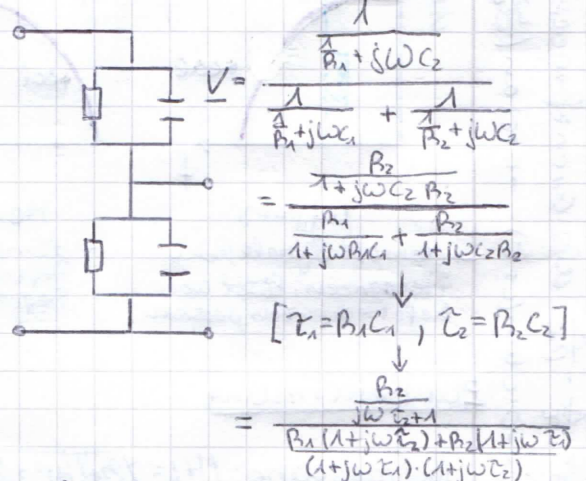 V = (1 / (1/R₁ + jωC₂)) / (1 / (1/R₁ + jωC₁) + 1 / (1/R₂ + jωC₂))
= (R₂ / (1 + jωC₂R₂)) / (R₁ / (1 + jωR₁C₁) + R₂ / (1 + jωC₂R₂))
↓
[τ₁ = R₁C₁ , τ₂ = R₂C₂]
↓
= (R₂ / (jωτ₂ + 1)) / ((R₁(1 + jωτ₂) + R₂(1 + jωτ₁)) / ((1 + jωτ₁)·(1 + jωτ₂)))